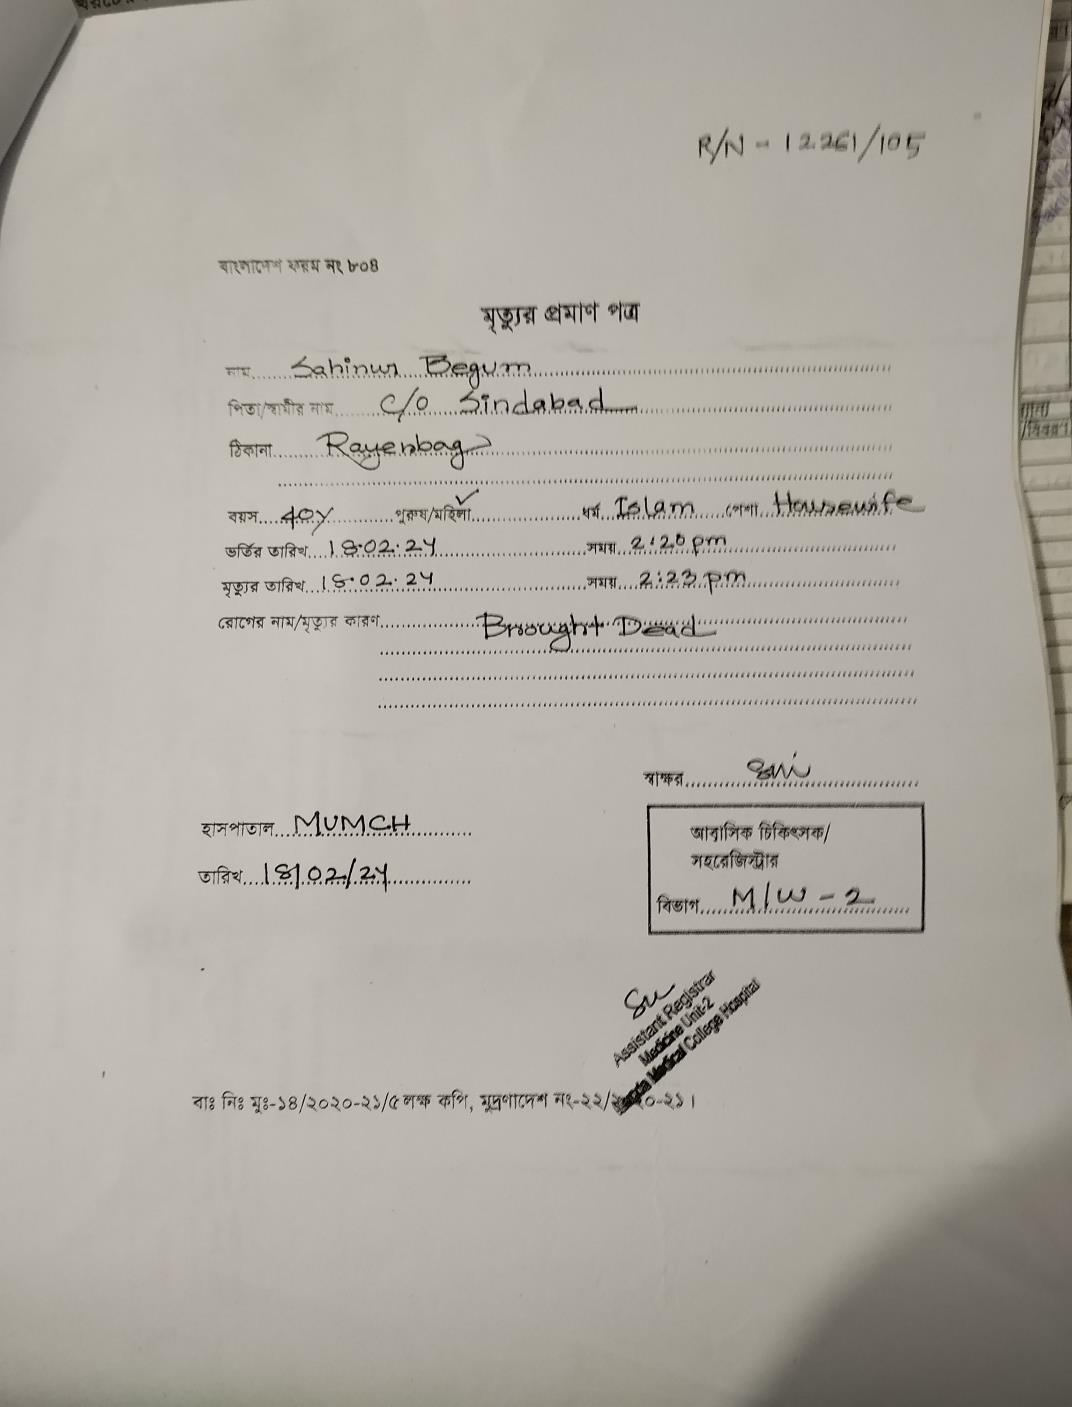 R/N - 12261/105
বাংলাদেশ ফরম নং ৮০৪
মৃত্যুর প্রমাণ পত্র
নাম Sahinur Begum
পিতা/স্বামীর নাম C/O Sindabad
ঠিকানা Rayerbag
বয়স 40y পুরুষ/মহিলা ✓ ধর্ম Islam পেশা Housewife
ভর্তির তারিখ 18.02.24 সময় 2:20 pm
মৃত্যুর তারিখ 18.02.24 সময় 2:23 pm
রোগের নাম/মৃত্যুর কারণ Brought Dead
স্বাক্ষর
হাসপাতাল MUMCH
তারিখ 18/02/24
আবাসিক চিকিৎসক/
সহরেজিস্ট্রার
বিভাগ M/W - 2
Assistant Registrar
Medicine Unit-2
Medical College Hospital
বাঃ নিঃ মুঃ-১৪/২০২০-২১/৫ লক্ষ কপি, মুদ্রণাদেশ নং-২২/২০২০-২১।